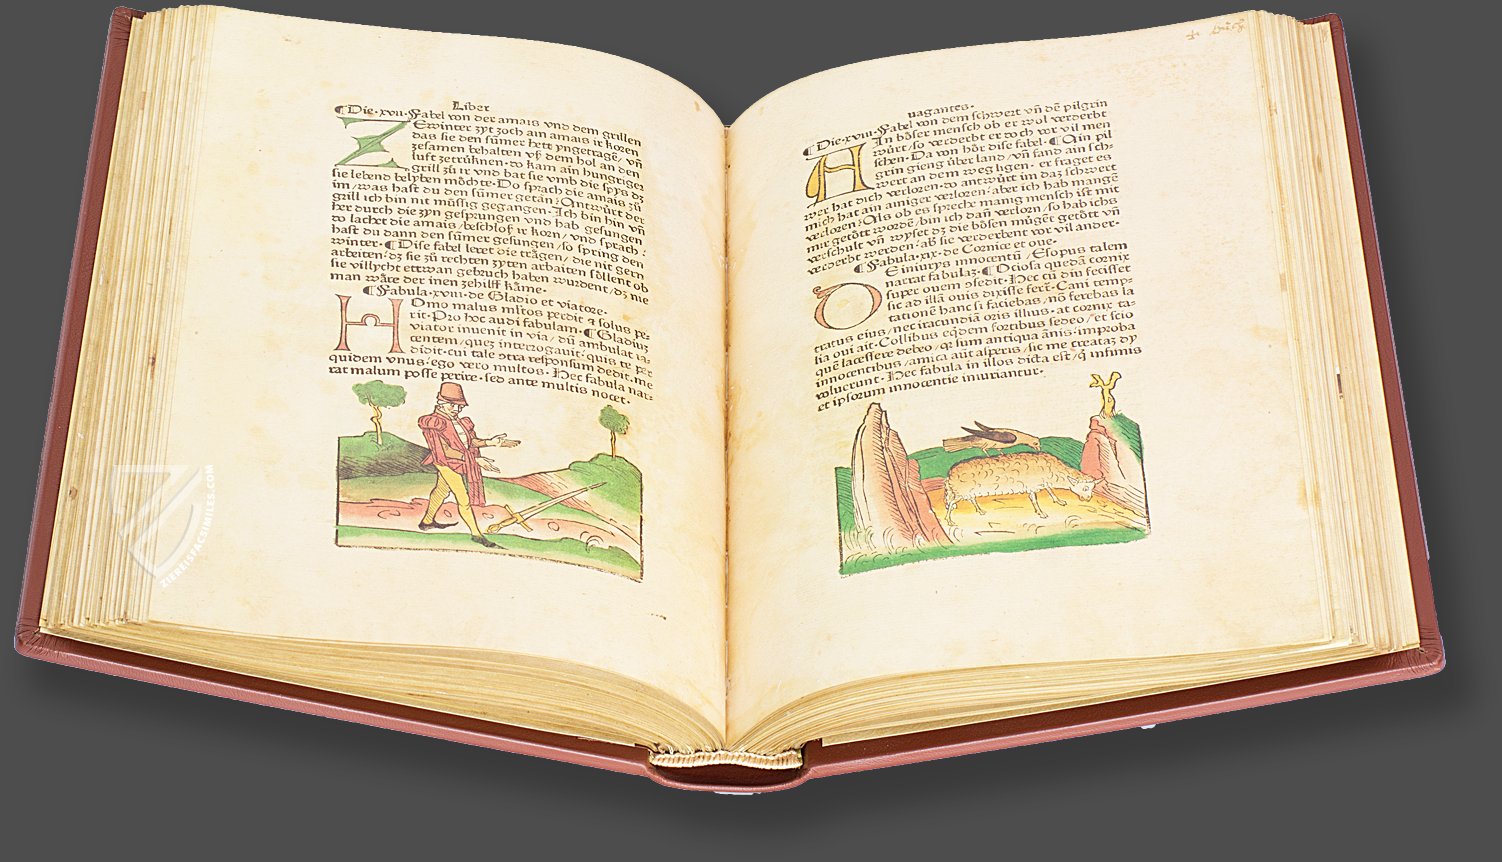 Liber
¶Die·xvii·Fabel von der amais vnd dem grillen
ZEwinter zyt zoch ain amais ir koren
das sie den sůmer hett yngetragē/vñ
zesamen behalten vß dem hol an den
luft zetrüknen·do kam ain hungriger
grill zů ir vnd bat sie vmb die spys dz
sie lebend belyben möchte·Do sprach die amais zů
im/was hast du den sůmer getān/Ontwürt der
grill ich bin nit müssig gegangen·Ich bin hin vñ
her durch die zyn gesprungen vnd hab gesungen
do lachet die amais/beschloß ir korn/vnd sprach:
hast du dann den sůmer gesungen/so spring den
winter·¶Dise fabel leret die trägen/die nit gern
arbeiten/dz sie zů rechten zyten arbaiten söllent ob
sie villycht ettwan gebruch haben wurdent/dz nie
man wäre der inen zehilff käme·
¶Fabula·xviii·de Gladio et viatore·
HOmo malus mltos perdit & solus pe-
rit·Pro hoc audi fabulam·¶Gladiuz
viator inuenit in via/dū ambulat ia-
centem/quez interrogauit·quis te per
didit·cui tale ɔtra responsum dedit·me
quidem vnus·ego vero multos·Hec fabula nar-
rat malum posse perire·sed ante multis nocet·
uagantes·
¶Die·xviii·Fabel von dem schwert vñ dē pilgrin
AIn böser mensch ob er wol verderbt
würt/so verderbt er doch vor vil men
schen·Da von hör dise fabel·¶Ain pil
grin gieng über land/vñ fand ain sch-
wert an dem weg ligen·er fraget es
wer hat dich verlozen·do antwürt im daz schwert
mich hat ain amiger verlozen/aber ich hab mangē
verlozen/Als ob es spreche manig mensch ist mit
mir getött wordē/bin ich dañ verlozn/so hab ichs
verschult vñ wyset dz die bösen můgēt getött vñ
verderbt werden/ab sie verderbent vor vil ander·
¶Fabula·xix·de Cornice et oue·
DE iniurys innocentū/Esopus talem
narrat fabulaz·¶Ociosa quedā cornix
super ouem ɔsedit·Hec cū diu fecisset
sic ad illā ouis dixisse fert·Cani temp-
tationē hanc si faciebas/nō ferebas la
tratus eius/nec iracundiā oris illius·at cornix ta-
lia oui ait·Collibus eqdem fortibus sedeo/et scio
quē lacessere debeo/qʒ sum antiqua ānis·improba
innocentibus/amica aūt asperis/sic me creataz dy
voluerunt·Hec fabula in illos dicta est/q̄ infimis
et ipsorum innocentie iniuriantur·
ZIEREISFACSIMILES.COM